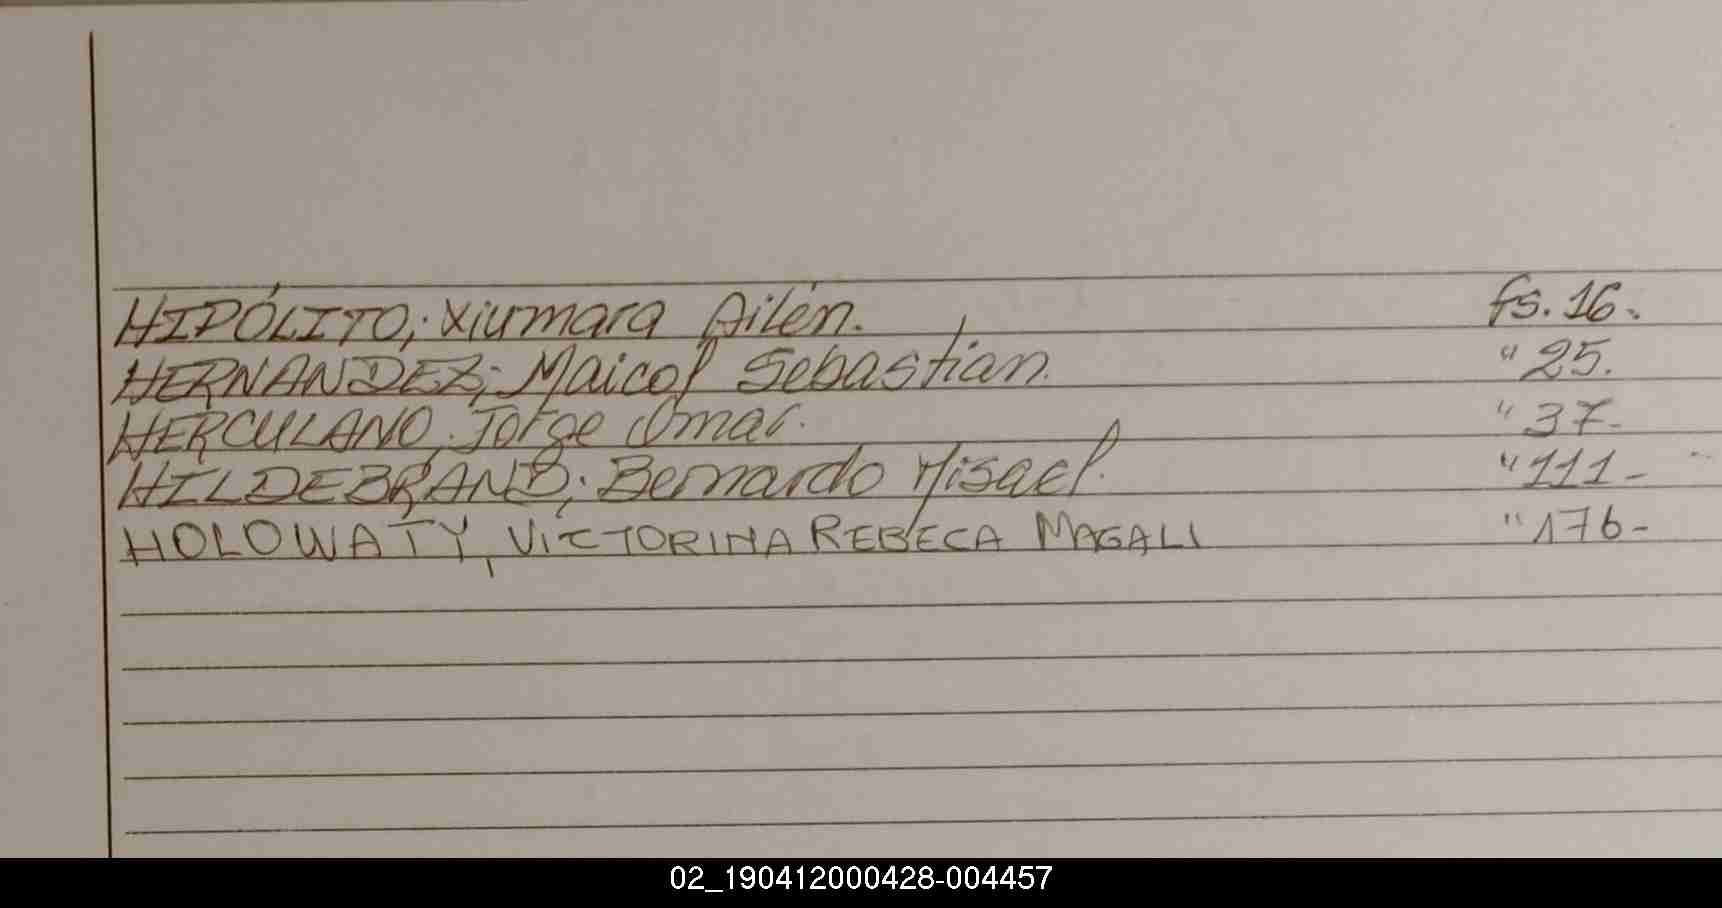 HIPÓLITO; Xiumara Ailén. fs. 16.
HERNANDEZ; Maicol Sebastián. " 25.
HERCULANO, Jorge Omar. " 37-
HILDEBRAND; Bernardo Misael. " 111-
HOLOWATY, VICTORINA REBECA MAGALI " 176-
02_190412000428-004457